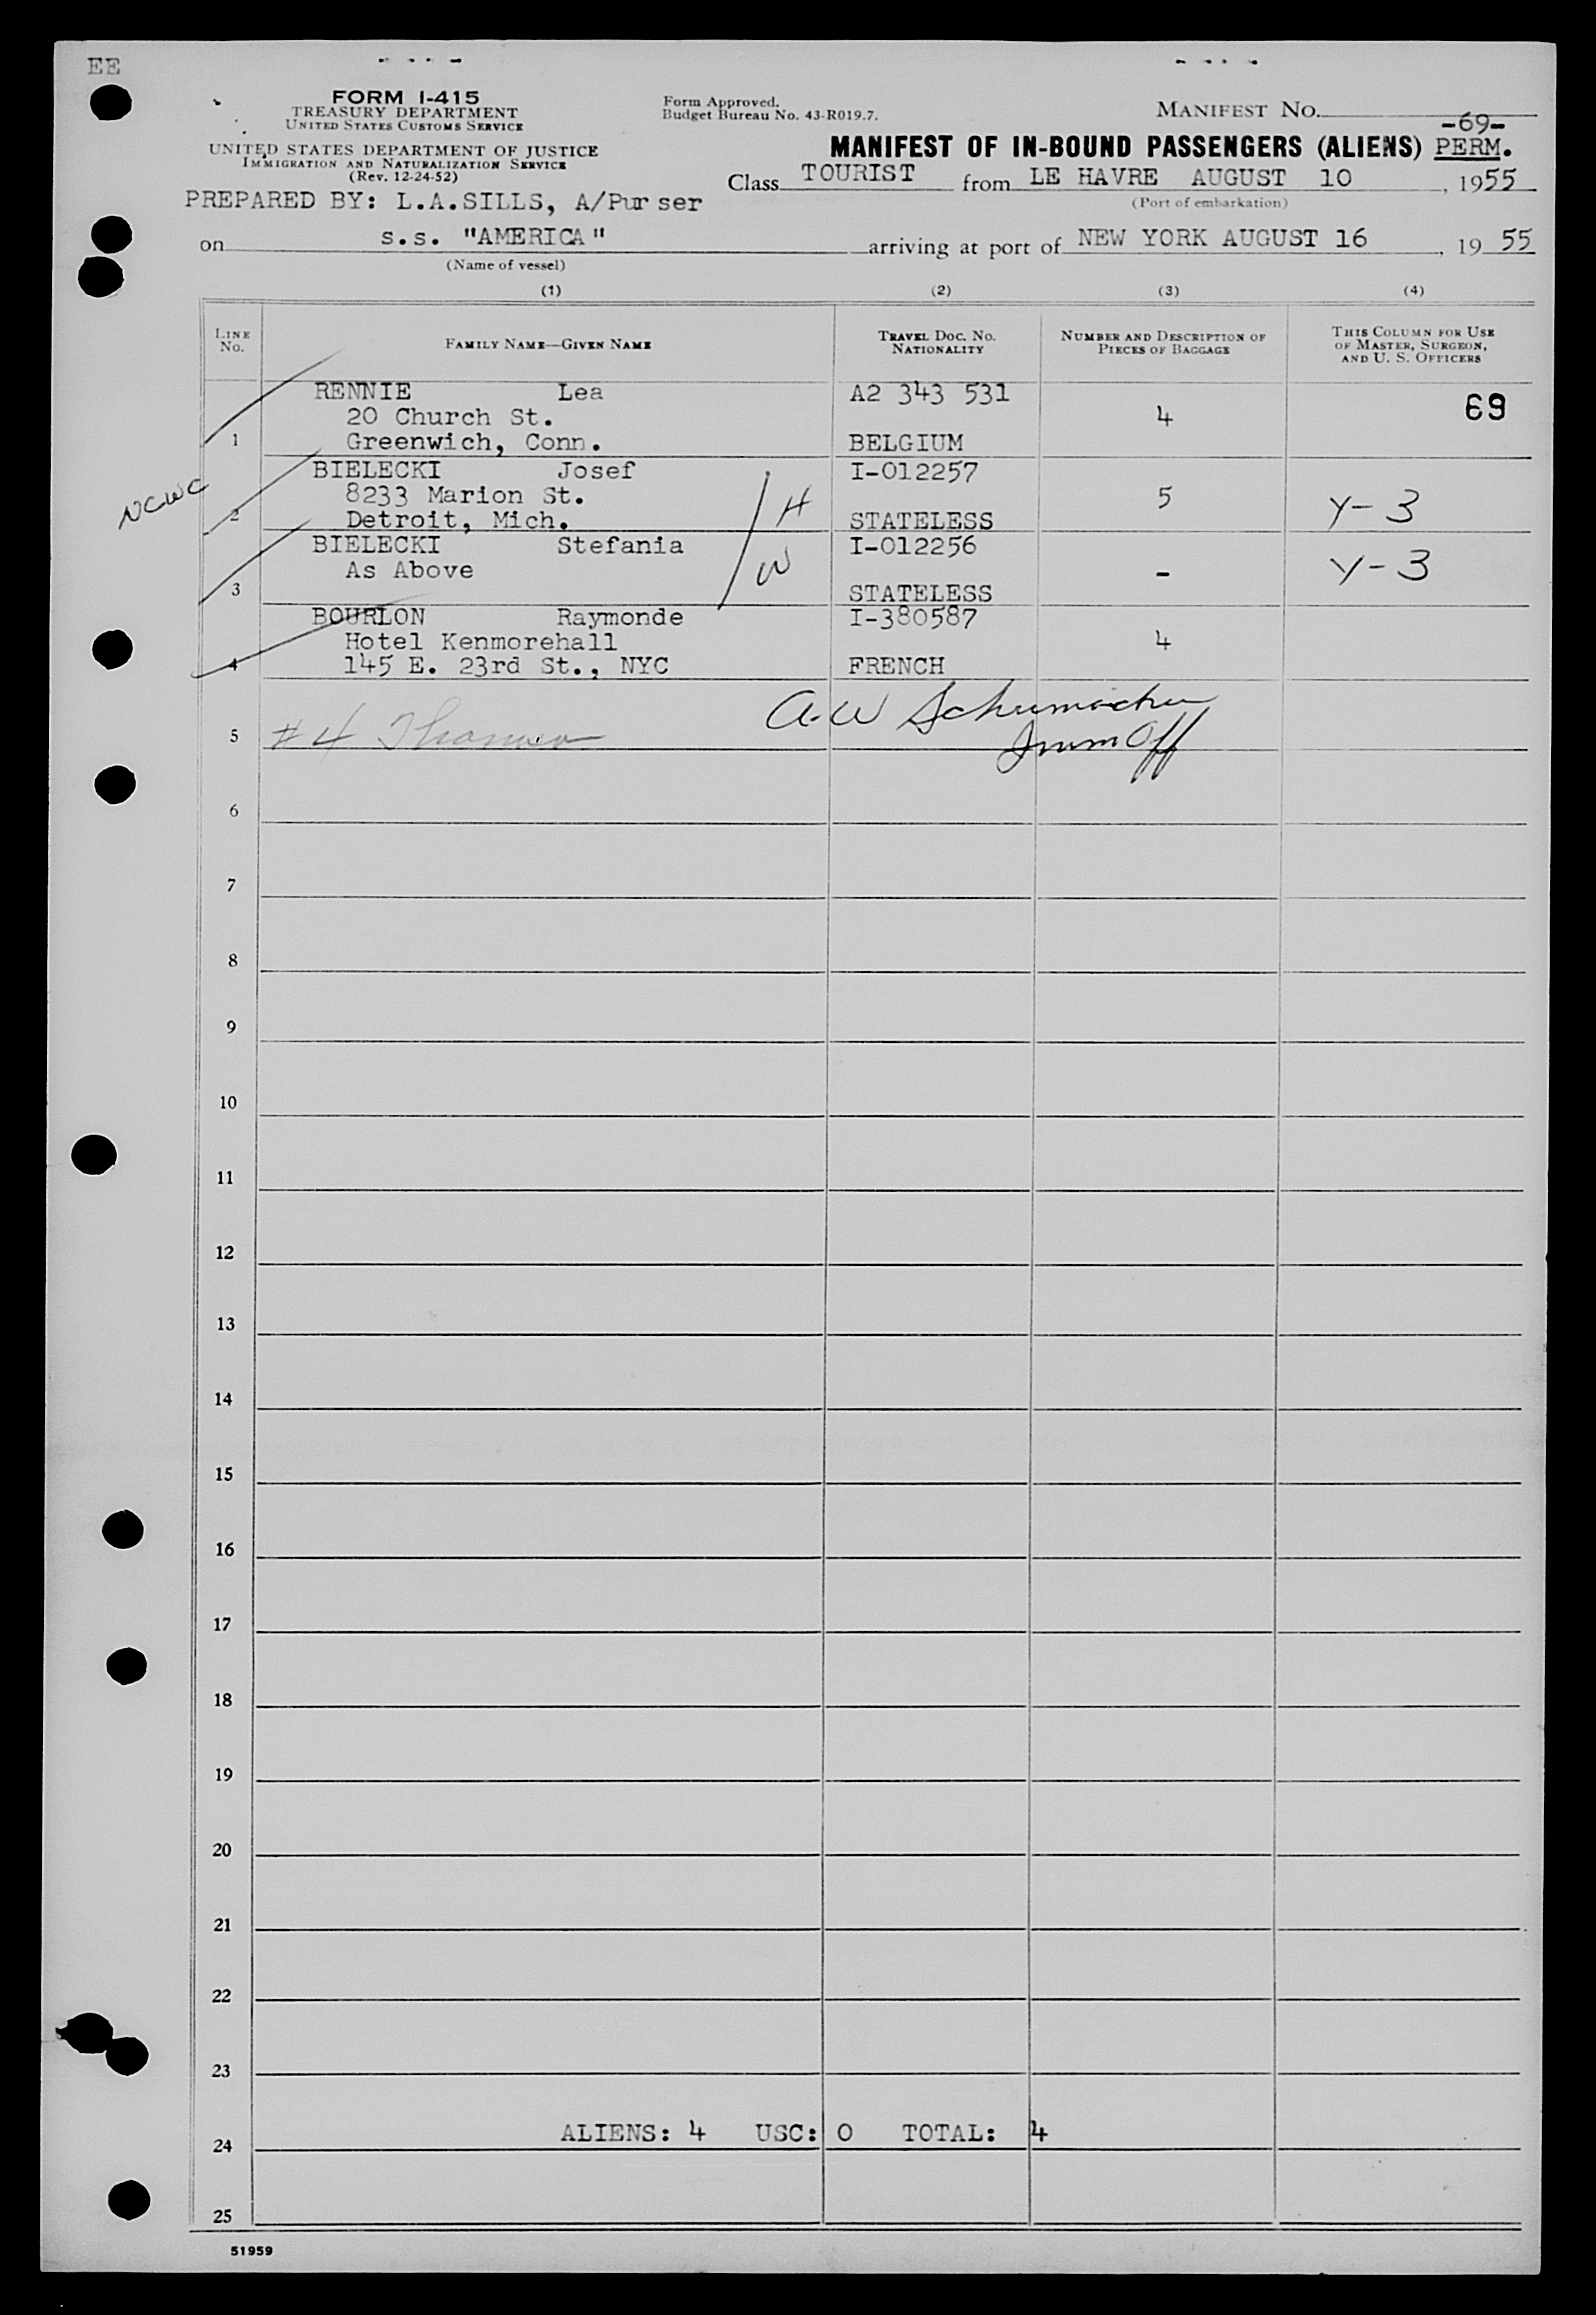 EE
FORM I-415
TREASURY DEPARTMENT
UNITED STATES CUSTOMS SERVICE
UNITED STATES DEPARTMENT OF JUSTICE
IMMIGRATION AND NATURALIZATION SERVICE
(Rev. 12-24-52)
PREPARED BY: L.A.SILLS, A/Purser
Form Approved.
Budget Bureau No. 43-R019.7.
MANIFEST NO.
-69-
MANIFEST OF IN-BOUND PASSENGERS (ALIENS) PERM.
Class TOURIST from LE HAVRE AUGUST 10, 1955
(Port of embarkation)
on s.s. "AMERICA" arriving at port of NEW YORK AUGUST 16, 19 55
(Name of vessel)
(1) (2) (3) (4)
LINE NO.
FAMILY NAME—GIVEN NAME
TRAVEL DOC. NO.
NATIONALITY
NUMBER AND DESCRIPTION OF
PIECES OF BAGGAGE
THIS COLUMN FOR USE
OF MASTER, SURGEON,
AND U. S. OFFICERS
RENNIE Lea A2 343 531
20 Church St. 4 69
1 Greenwich, Conn. BELGIUM
BIELECKI Josef I-012257
NCWC 8233 Marion St. H 5 Y-3
2 Detroit, Mich. STATELESS
BIELECKI Stefania I-012256
As Above W - Y-3
3 STATELESS
BOURLON Raymonde I-380587
Hotel Kenmorehall 4
4 145 E. 23rd St., NYC FRENCH
A.W Schumacher
5 #4
Imm Off
6
7
8
9
10
11
12
13
14
15
16
17
18
19
20
21
22
23
ALIENS: 4 USC: 0 TOTAL: 4
24
25
51959